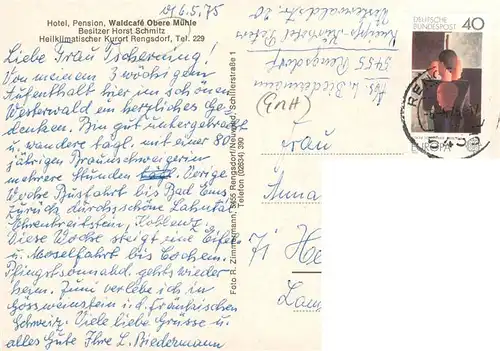 d. 6.5.75
Hotel, Pension, Waldcafé Obere Mühle
Besitzer Horst Schmitz
Heilklimatischer Kurort Rengsdorf, Tel. 229
Liebe Frau Tscherning!
Von meinem 3 wöchigen
Aufenthalt hier im schönen
Westerwald ein herzliches Ge-
denken. Bin gut untergebracht
u. wandere tägl. mit einer 80
jährigen Braunschweigerin
mehrere Stunden. Vorige
Woche Busfahrt bis Bad Ems
zurück durchs schöne Lahntal
Ehrenbreitstein, Koblenz.
Diese Woche steigt eine Eifel
u. Moselfahrt bis Cochem.
Pfingstsonnabd. gehts wieder
heim. Juni verlebe ich in
Gössweinstein i. d. Fränkischen
Schweiz. Viele liebe Grüsse u.
alles Gute Ihre L. Biedermann
Foto R. Zimmermann, 5455 Rengsdorf/Neuwied, Schillerstraße 1
Telefon (02634) 390
Abs. L. Biedermann
5455 Rengsdorf
Westerwaldstr. 20
DEUTSCHE
BUNDESPOST
40
5455
Frau
Anna
71 He
Lam